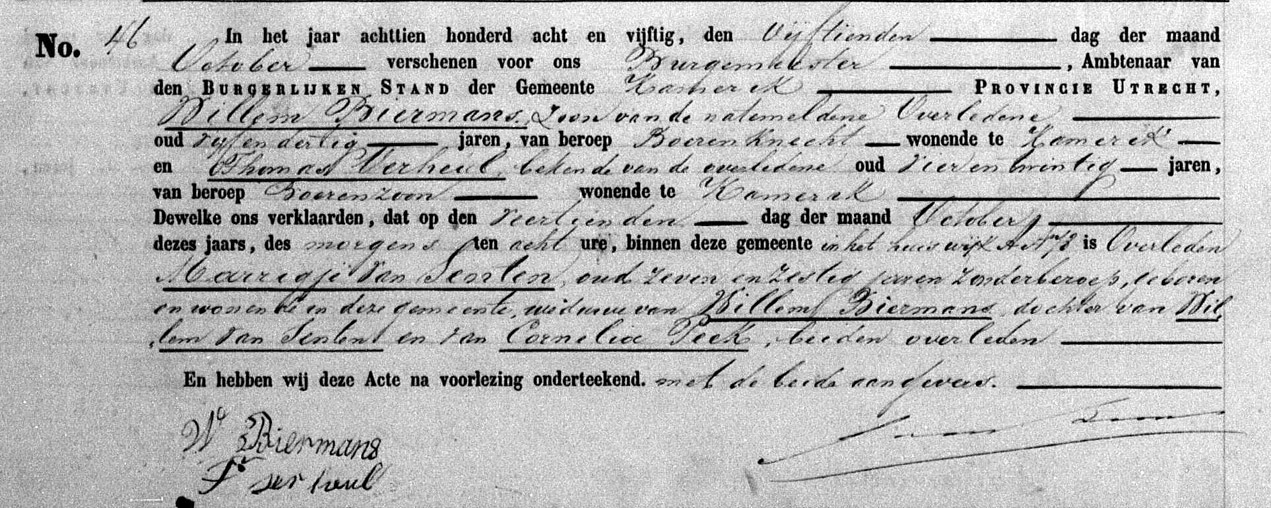 No. 46 In het jaar achttien honderd acht en vijftig, den Vijftienden dag der maand
October verschenen voor ons Burgemeester, Ambtenaar van
den BURGERLIJKEN STAND der Gemeente Kamerik PROVINCIE UTRECHT,
Willem Biermans, Zoon van de natemeldene Overledene
oud vyfendertig jaren, van beroep Boerenknecht wonende te Kamerik
en Thomas Verheul, bekende van de overledene oud vierentwintig jaren,
van beroep Boerenzoon wonende te Kamerik
Dewelke ons verklaarden, dat op den veertienden dag der maand October
dezes jaars, des morgens ten acht ure, binnen deze gemeente in het huis wijk A is Overleden
Marrigje van Senten, oud zeven en zestig jaren zonder beroep, geboren
en wonende in deze gemeente, weduwe van Willem Biermans, dochter van Wil
lem van Senten en van Cornelia Peek, beiden overleden
En hebben wij deze Acte na voorlezing onderteekend. met de beide aangevers.
Wo Biermans